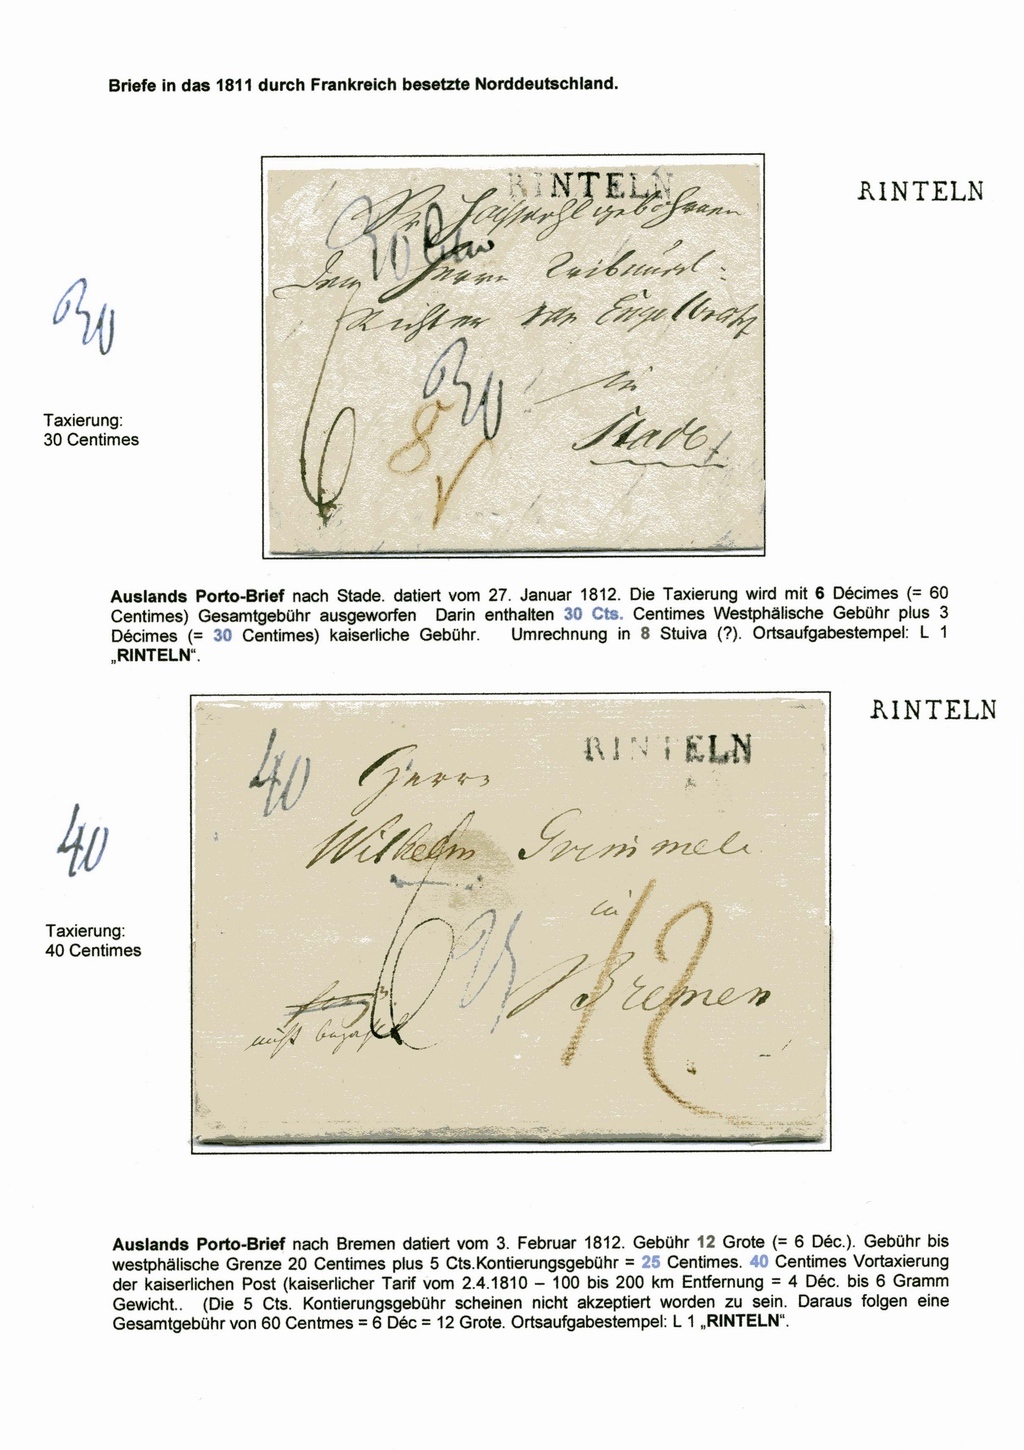 Briefe in das 1811 durch Frankreich besetzte Norddeutschland.
RINTELN
RINTELN
30
Herrn
30
30
6
8
in
Stade
Taxierung:
30 Centimes
Auslands Porto-Brief nach Stade. datiert vom 27. Januar 1812. Die Taxierung wird mit 6 Décimes (= 60
Centimes) Gesamtgebühr ausgeworfen Darin enthalten 30 Cts. Centimes Westphälische Gebühr plus 3
Décimes (= 30 Centimes) kaiserliche Gebühr. Umrechnung in 8 Stuiva (?). Ortsaufgabestempel: L 1
„RINTELN“.
RINTELN
RINTELN
40
Herrn
Wilhelm
40
in
6
25
12
Bremen
Taxierung:
40 Centimes
Auslands Porto-Brief nach Bremen datiert vom 3. Februar 1812. Gebühr 12 Grote (= 6 Déc.). Gebühr bis
westphälische Grenze 20 Centimes plus 5 Cts.Kontierungsgebühr = 25 Centimes. 40 Centimes Vortaxierung
der kaiserlichen Post (kaiserlicher Tarif vom 2.4.1810 – 100 bis 200 km Entfernung = 4 Déc. bis 6 Gramm
Gewicht.. (Die 5 Cts. Kontierungsgebühr scheinen nicht akzeptiert worden zu sein. Daraus folgen eine
Gesamtgebühr von 60 Centmes = 6 Déc = 12 Grote. Ortsaufgabestempel: L 1 „RINTELN“.